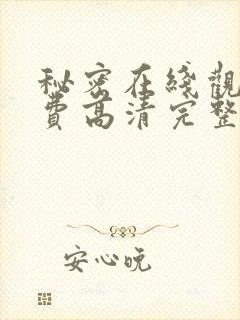 秘密在綫觀
費高清完整
安心晚